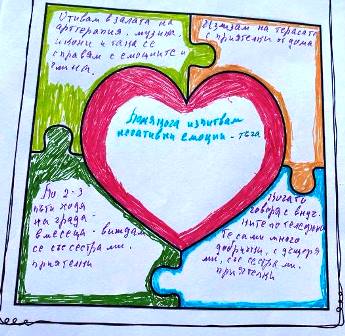 Отивам в залата на
арттерапия. музика.
и така се
справям с емоциите и
Излизам на терасата
с приятелки от дома
Понякога изпитвам
негативни емоции - тъга.
По 2-3
пъти ходя
на града
в месеца. виждам
се със сестра ми.
приятелки
Когато
говоря с
по телефона
Те са ми много
с дъщеря
ми, със сестра ми.
приятелки